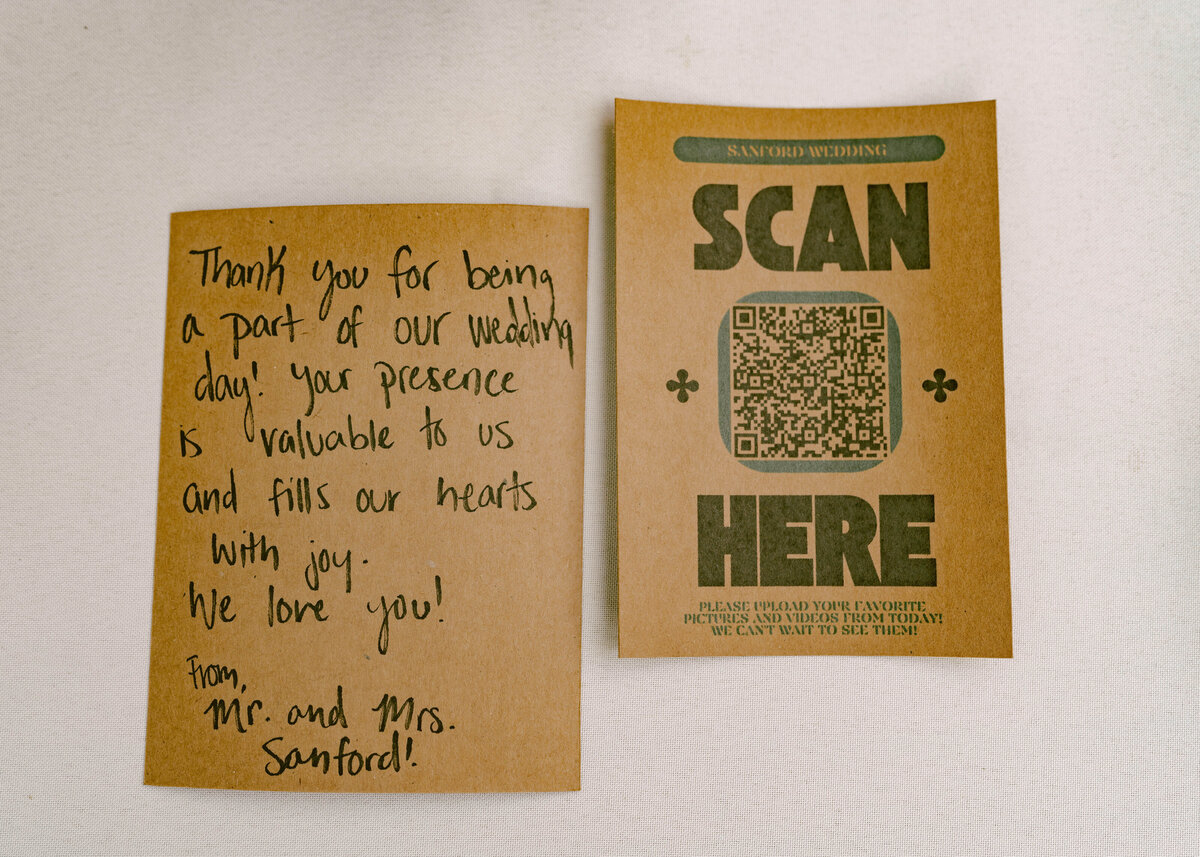 Thank you for being
a part of our wedding
day! Your presence
is valuable to us
and fills our hearts
with joy.
We love you!
From,
Mr. and Mrs.
Sanford!
SANFORD WEDDING
SCAN
HERE
PLEASE UPLOAD YOUR FAVORITE
PICTURES AND VIDEOS FROM TODAY!
WE CAN'T WAIT TO SEE THEM!